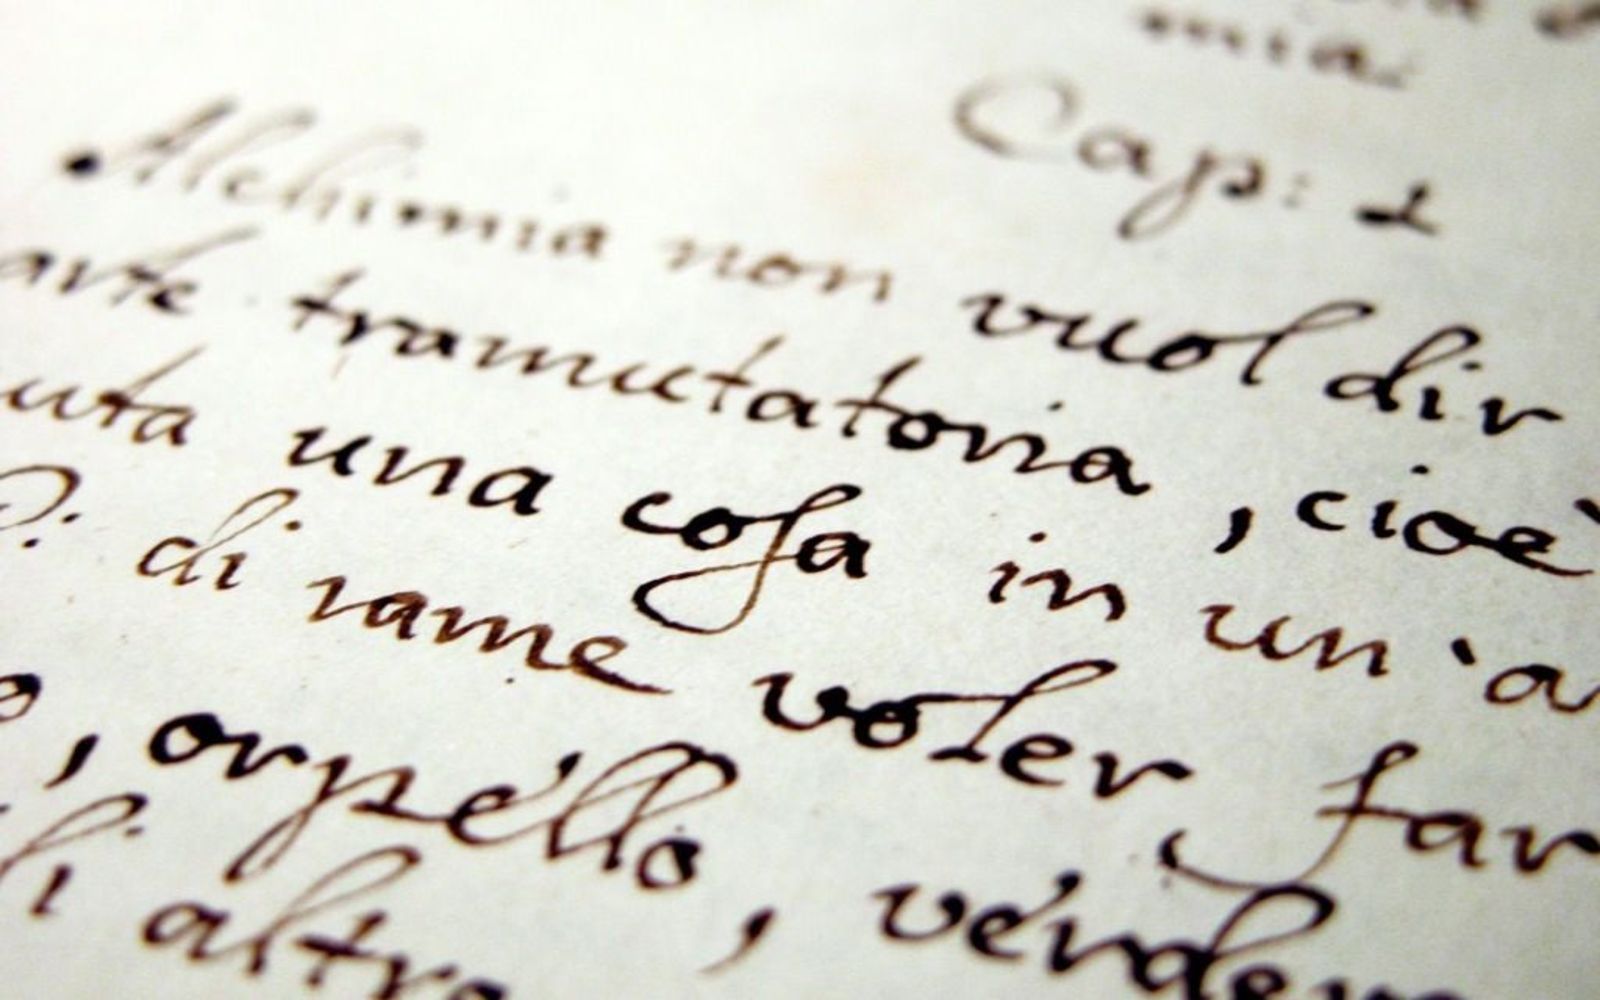 mia.
Cap: 1
Alchimia non vuol dir
arte tramutatoria, cioè
una cosa in un'a
di rame voler far
, orpello, vender
altro